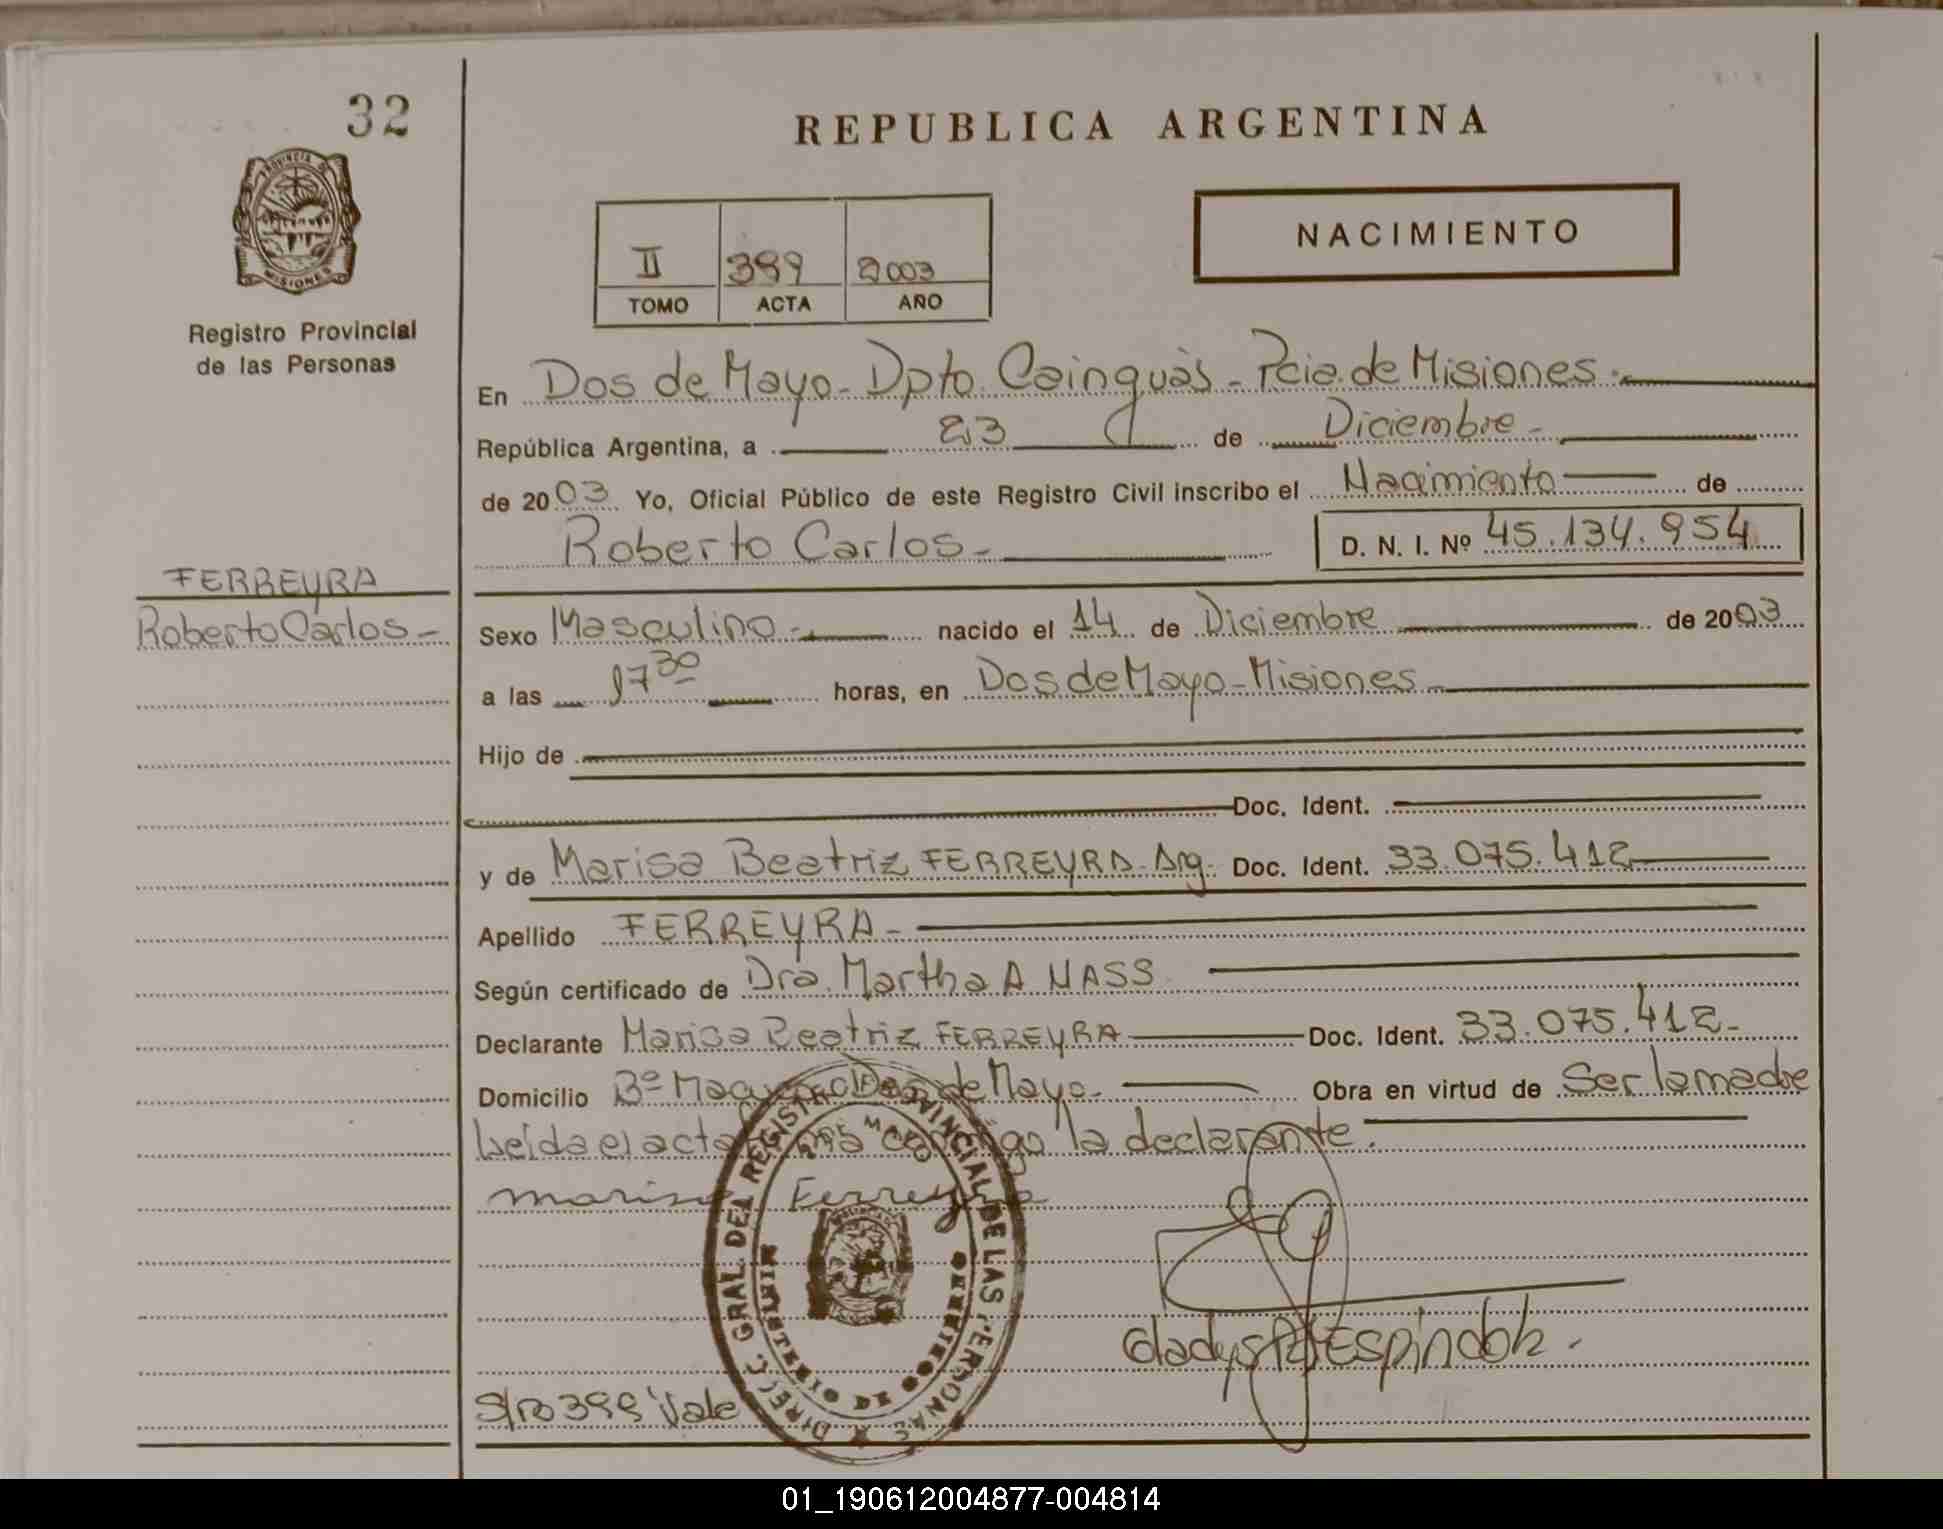 32
REPUBLICA ARGENTINA
PROVINCIA DE
MISIONES
Registro Provincial
de las Personas
II 399 2003
TOMO ACTA AÑO
NACIMIENTO
En Dos de Mayo - Dpto. Cainguàs - Pcia. de Misiones.-
República Argentina, a 23 de Diciembre -
de 2003 Yo, Oficial Público de este Registro Civil inscribo el Nacimiento de
Roberto Carlos - D. N. I. Nº 45.134.954
FERREYRA
Roberto Carlos -
Sexo Masculino - nacido el 14 de Diciembre de 2003
a las 17 30 horas, en Dos de Mayo - Misiones -
Hijo de
Doc. Ident.
y de Marisa Beatriz FERREYRA - Arg. Doc. Ident. 33.075.412
Apellido FERREYRA -
Según certificado de Dra. Martha A NASS
Declarante Marisa Beatriz FERREYRA Doc. Ident. 33.075.412 -
Domicilio Bº Dos de Mayo - Obra en virtud de Ser la madre
Leida el acta conmigo la declarante.
marisa Ferreyra
DIRECC. GRAL. DEL REGISTRO PROVINCIAL DE LAS PERSONAS
MINISTERIO DE GOBIERNO
Gladys Espindola.
S/ro 399 Vale
01_190612004877-004814